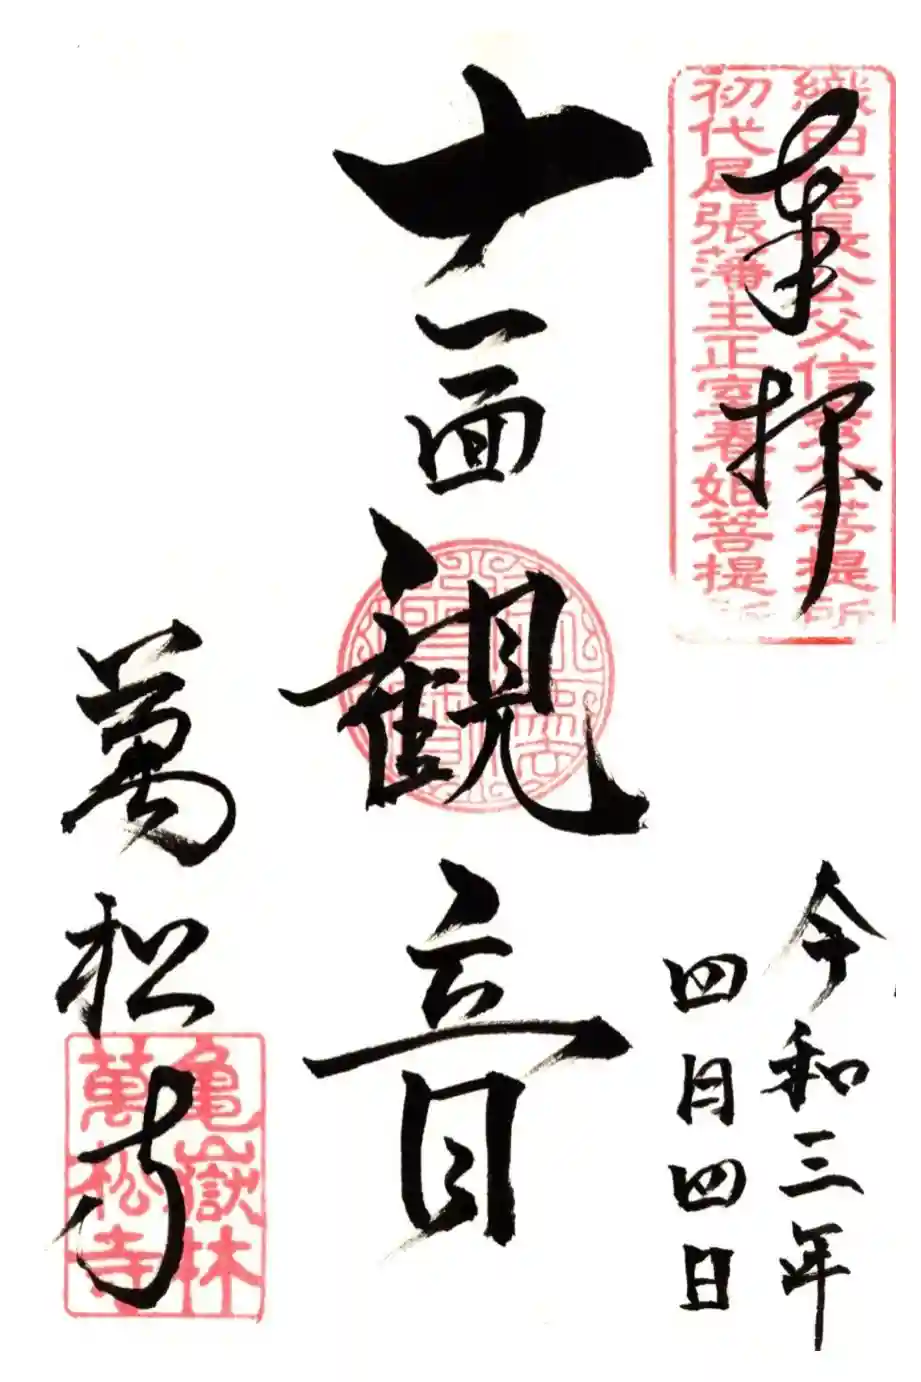 奉拝
織田信長公父信秀公菩提所
初代尾張藩主正室春姫菩提所
令和三年
四月四日
十一面観音
萬松寺
亀嶽林
萬松寺